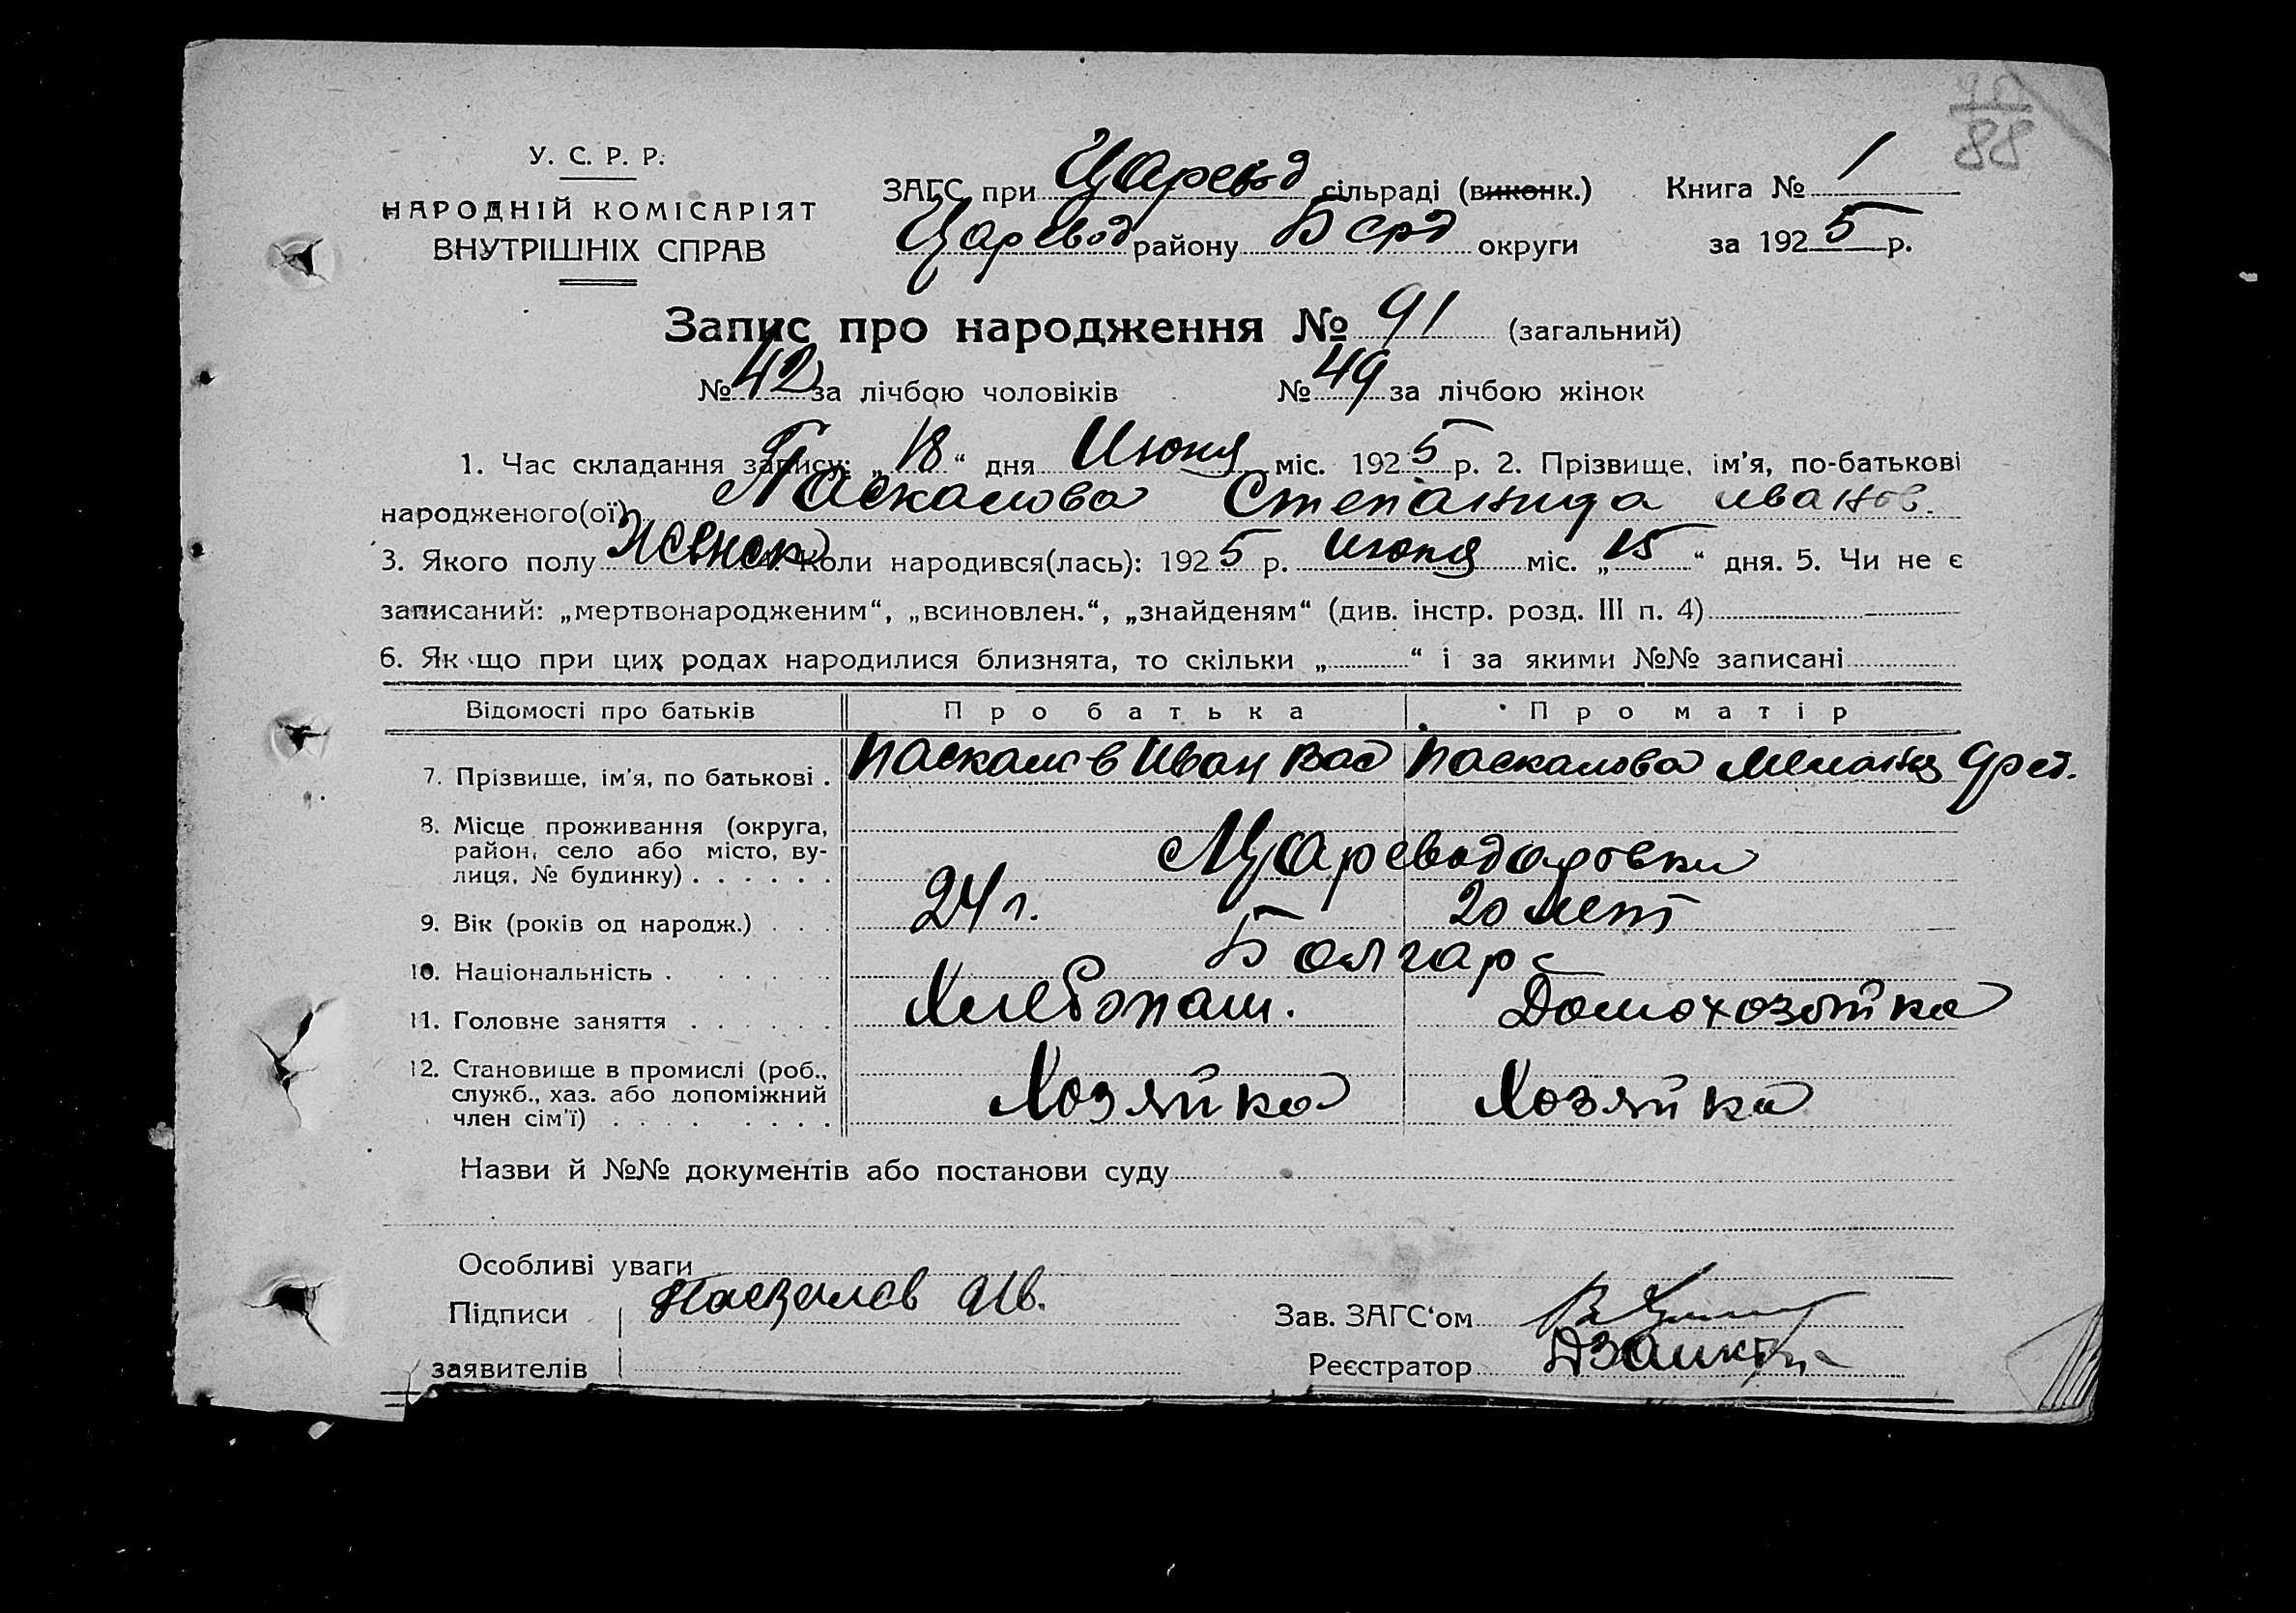 88
У. С. Р. Р.
НАРОДНІЙ КОМІСАРІЯТ
ВНУТРІШНІХ СПРАВ
ЗАГС при Царевод сільраді (виконк.) Книга № 1
Царевод району Берд округи за 1925 р.
Запис про народження № 91 (загальний)
№ 42 за лічбою чоловіків № 49 за лічбою жінок
1. Час складання запису: „18“ дня Июня міс. 1925 р. 2. Прізвище, ім’я, по-батькові
народженого(ої) Паскалова Степанида Иванов.
3. Якого полу Женск 4. Коли народився(лась): 1925 р. Июня міс. „15“ дня. 5. Чи не є
записаний: „мертвонародженим“, „всиновлен.“, „знайденям“ (див. інстр. розд. III п. 4)
6. Як що при цих родах народилися близнята, то скільки „ “ і за якими №№ записані
Відомості про батьків Про батька Про матір
7. Прізвище, ім’я, по батькові . Паскалов Иван Вас Паскалова Мелания
8. Місце проживання (округа,
район, село або місто, ву-
лиця, № будинку) . . . . . . Цареводаровки
9. Вік (років од народж.) . . . 24 г. 20 лет
10. Національність . . . . . Болгаре
11. Головне заняття . . . . . . Хлебопаш. Домохозяйка
12. Становище в промислі (роб.,
служб., хаз. або допоміжний
член сім’ї) . . . . . . . . Хозяйка Хозяйка
Назви й №№ документів або постанови суду
Особливі уваги
Підписи Паскалов Ив. Зав. ЗАГС‘ом
заявителів Реєстратор